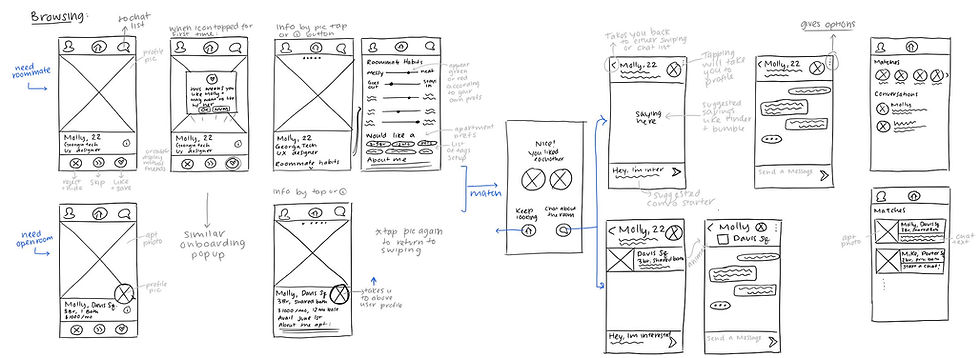 Browsing:
to chat
list
need
roommate
profile
pic
Molly, 22
Georgia Tech
UX designer
reject
+ hide
skip
like
+ save
When icon tapped for
first time:
this means you
like Molly +
Molly, 22
Georgia Tech
UX designer
Similar
onboarding
popup
Info by pic tap
or ⓘ button
Molly, 22
Georgia Tech
UX designer
Roommate habits
Roommate Habits
Messy
neat
Goes
out
stays
in
Would like a
About me
appear
green
or red
according
to your
own prefs
apartment
prefs
list
of tags
setup
need
open room
apt
photo
profile
pic
Molly, Davis Sq
3 Br, 1 Bath
$1000/mo
Info by tap or ⓘ
Molly, Davis Sq
3Br, shared bath
$1000/mo, 12 mo lease
Avail June 1st
About me apt:
* tap pic again
to return to
swiping
takes u
to above
user profile
match
Nice!
You liked
eachother
Keep
looking
Chat about
the room
Takes you back
to either swiping
or chat list
Molly, 22
saying
here
Hey, I'm inter
Tapping
will take
you to
profile
suggested
sayings
like tinder
+ bumble
suggested
convo starter
gives options
Molly, 22
Send a Message
Matches
Conversations
Molly
Molly, 22
Davis Sq
3br, shared bath
Hey, I'm interest
Molly
Davis Sq
Send a Message
Matches
Molly, Davis Sq
3br, shared bath
Mike, Porter Sq
Start a chat!
apt
photo
chat
text